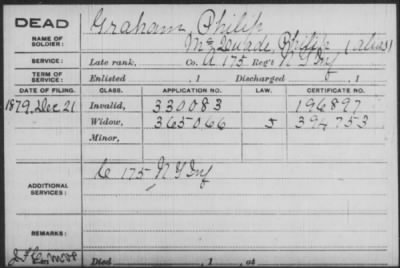 DEAD
NAME OF SOLDIER:
Graham, Philip
McQuade, Philip (alias)
SERVICE: Late rank, Co. A 175 Reg't N Y Inf
TERM OF SERVICE: Enlisted , 1 Discharged , 1
DATE OF FILING. CLASS. APPLICATION NO. LAW. CERTIFICATE NO.
1879, Dec 21 Invalid, 330083 196897
Widow, 365066 394753
Minor,
ADDITIONAL SERVICES:
C 175 N Y Inf
REMARKS:
Died , 1 , at